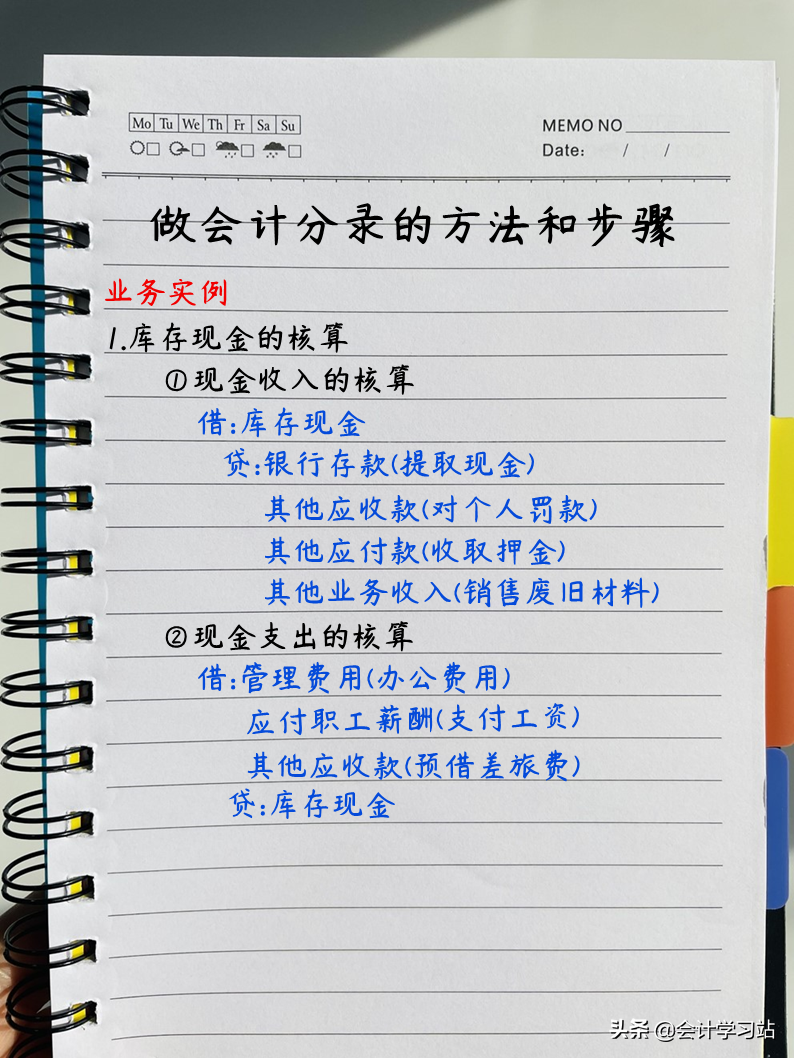 Mo Tu We Th Fr Sa Su
MEMO NO
Date: / /
做会计分录的方法和步骤
业务实例
1.库存现金的核算
①现金收入的核算
借:库存现金
贷:银行存款(提取现金)
其他应收款(对个人罚款)
其他应付款(收取押金)
其他业务收入(销售废旧材料)
②现金支出的核算
借:管理费用(办公费用)
应付职工薪酬(支付工资)
其他应收款(预借差旅费)
贷:库存现金
头条 @会计学习站